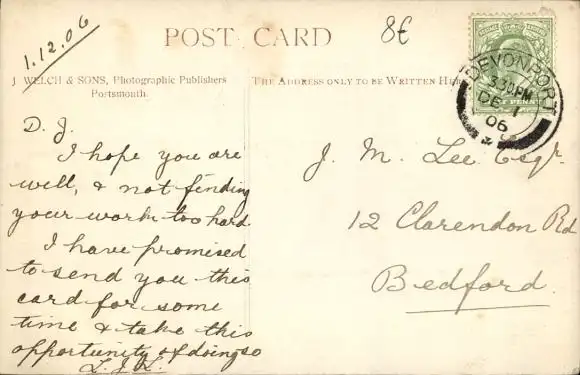 1.12.06
POST CARD
8€
J. WELCH & SONS, Photographic Publishers
Portsmouth.
THE ADDRESS ONLY TO BE WRITTEN HER
DEVONPORT
3 30 PM
DE 1
06
PENNY
D. J.
I hope you are
well, & not finding
your work too hard.
I have promised
to send you this
card for some
time & take this
opportunity of doing so
L. J. L.
J. M. Lee Esqr.
12 Clarendon Rd
Bedford.